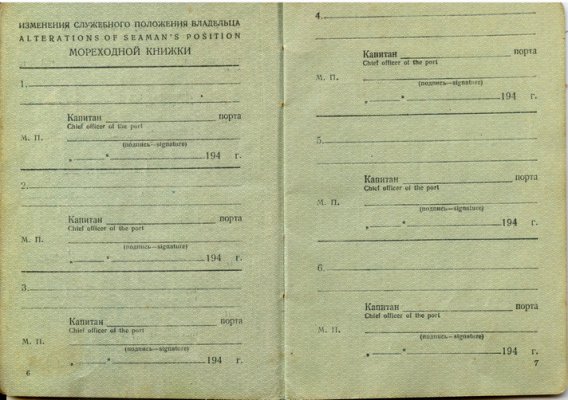 ИЗМЕНЕНИЯ СЛУЖЕБНОГО ПОЛОЖЕНИЯ ВЛАДЕЛЬЦА
ALTERATIONS OF SEAMAN'S POSITION
МОРЕХОДНОЙ КНИЖКИ
1.
Капитан порта
Chief officer of the port
М. П.
(подпись—signature)
„ — “ 194 г.
2.
Капитан порта
Chief officer of the port
М. П.
(подпись—signature)
„ — “ 194 г.
3.
Капитан порта
Chief officer of the port
М. П.
(подпись—signature)
„ — “ 194 г.
6
4.
Капитан порта
Chief officer of the port
М. П.
(подпись—signature)
„ — “ 194 г.
5.
Капитан порта
Chief officer of the port
М. П.
(подпись—signature)
„ — “ 194 г.
6.
Капитан порта
Chief officer of the port
М. П.
(подпись—signature)
„ — “ 194 г.
7